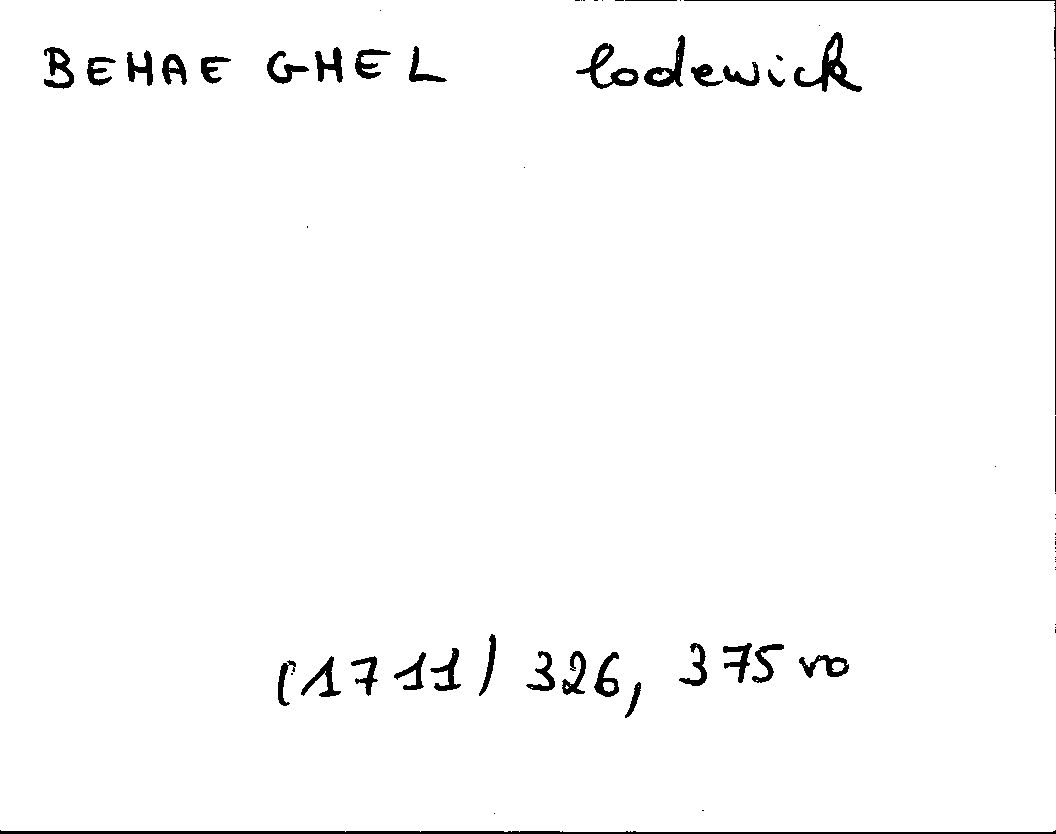 BEHAEGHEL lodewick
(1711) 326, 375 vo